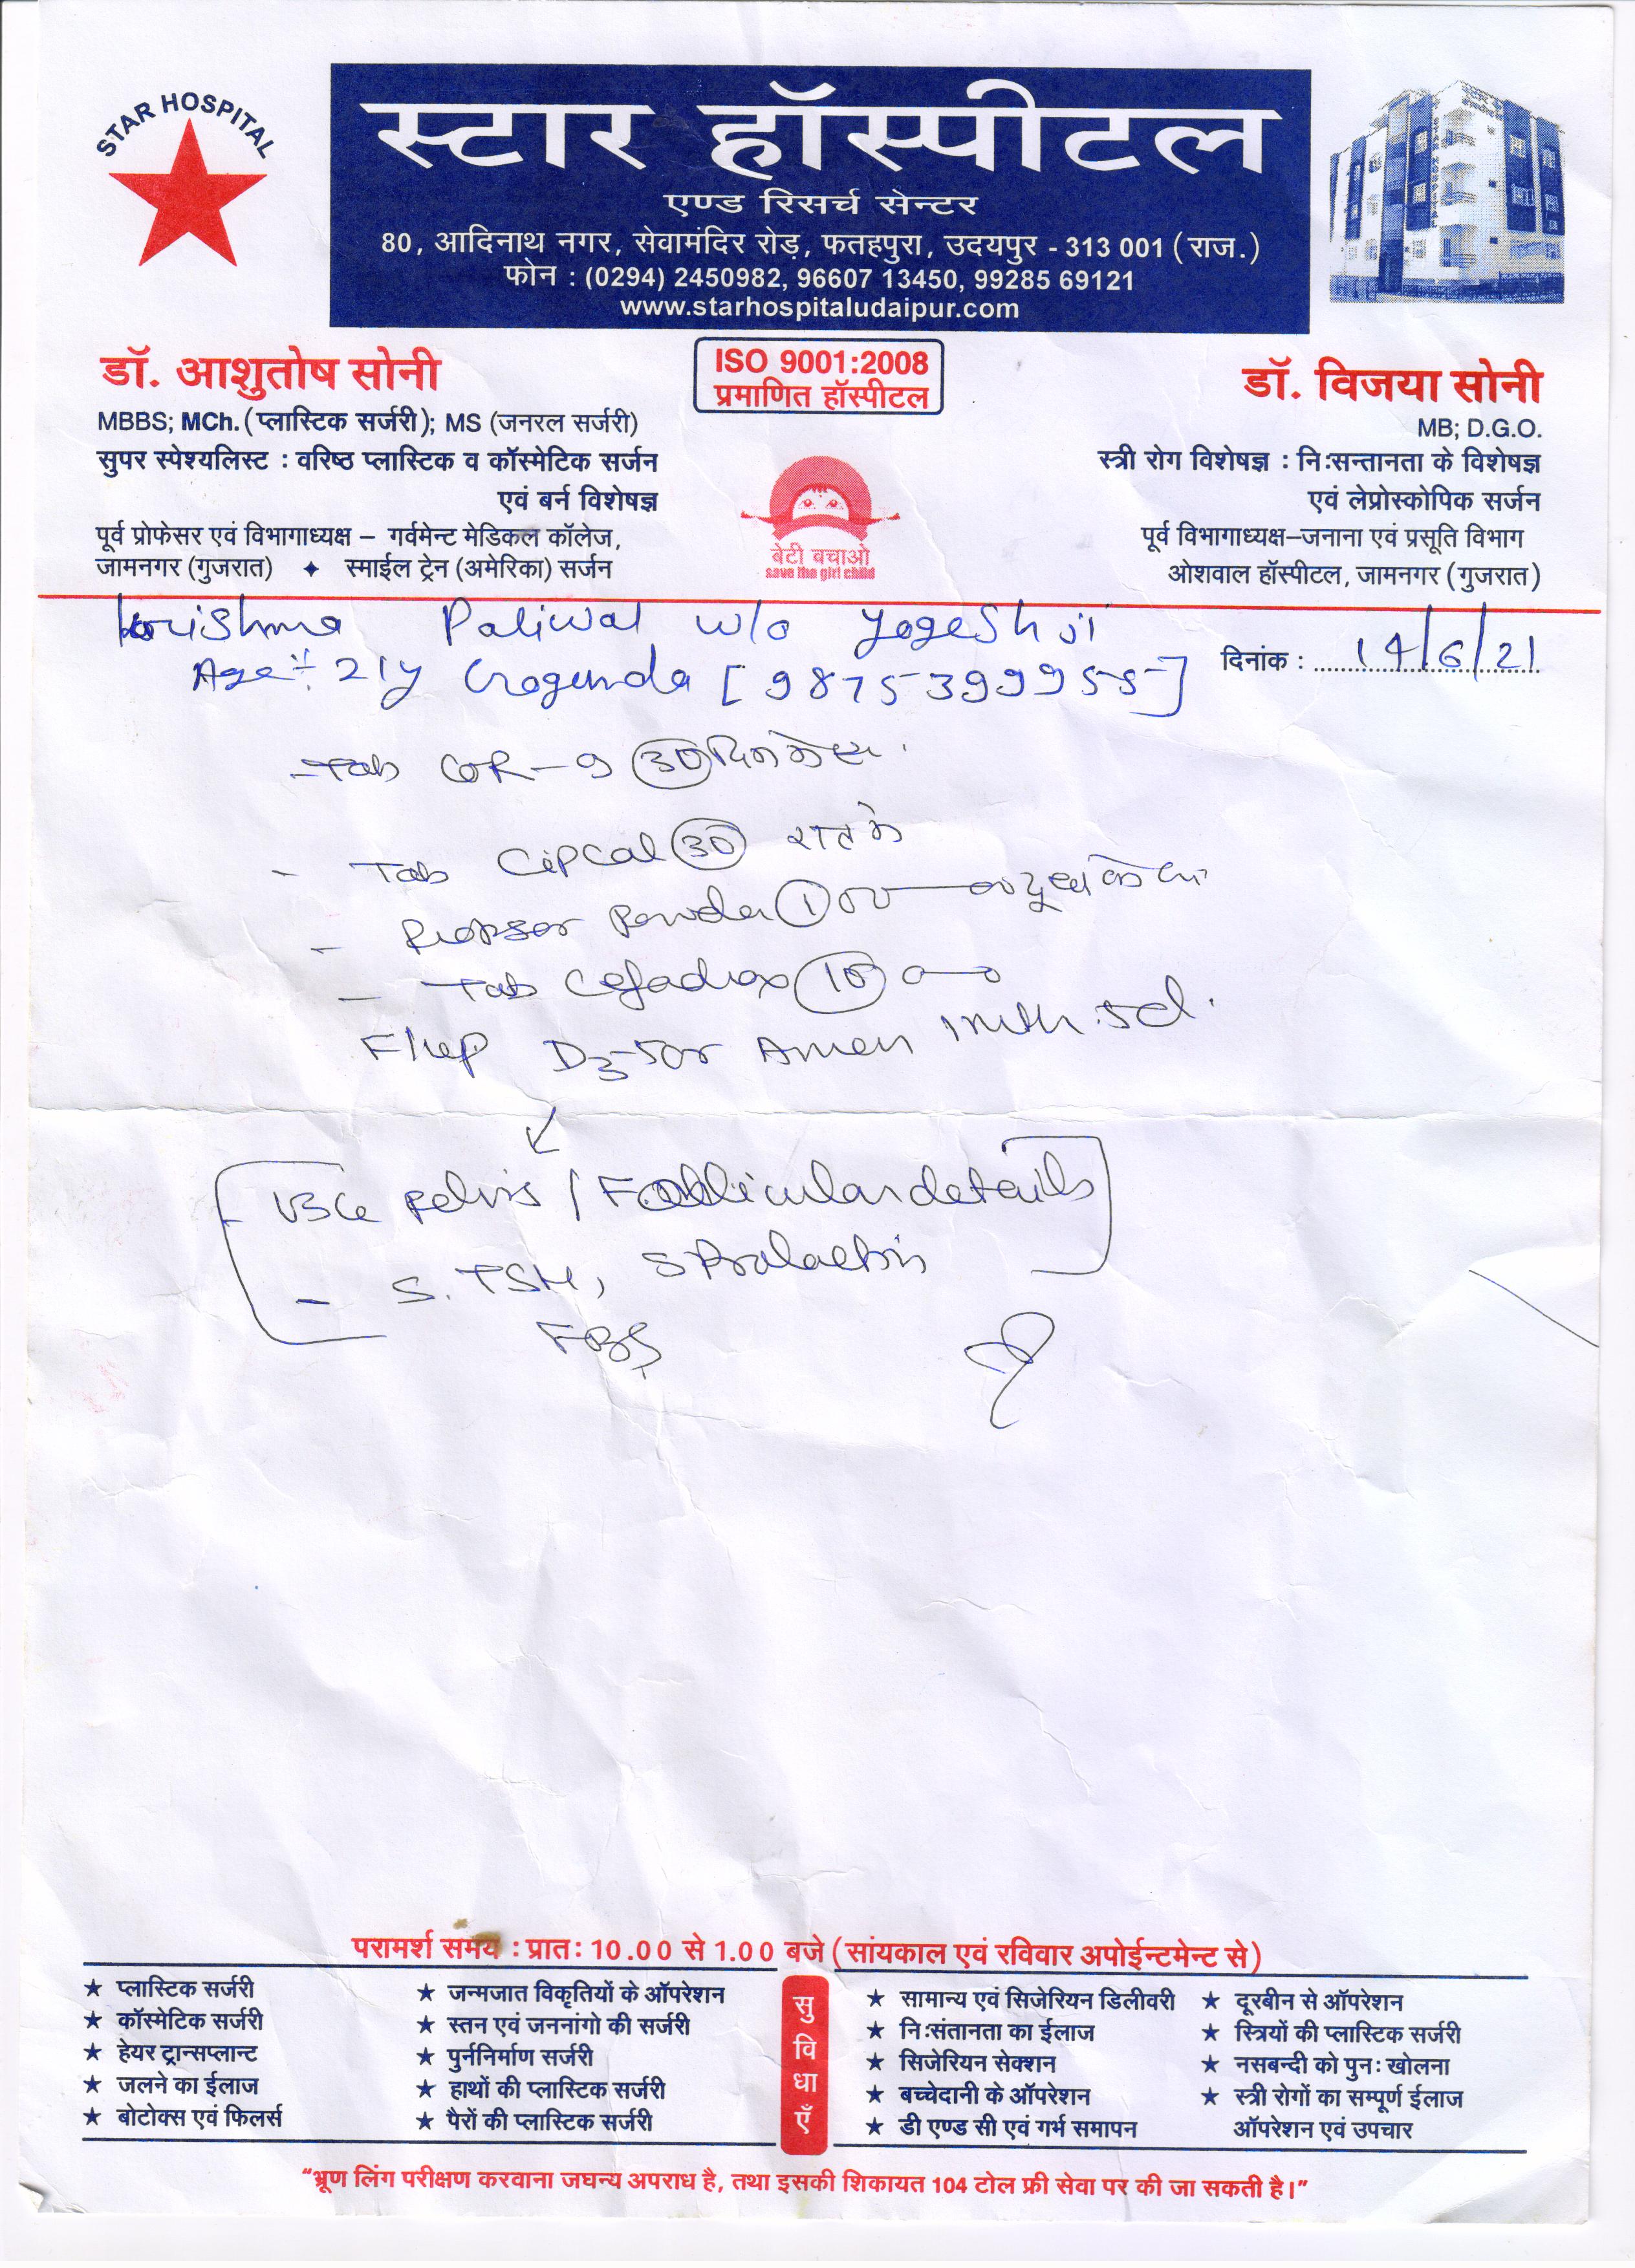 STAR HOSPITAL
स्टार हॉस्पीटल
एण्ड रिसर्च सेन्टर
80, आदिनाथ नगर, सेवामंदिर रोड़, फतहपुरा, उदयपुर - 313 001 (राज.)
फोन : (0294) 2450982, 96607 13450, 99285 69121
www.starhospitaludaipur.com
ISO 9001:2008
प्रमाणित हॉस्पीटल
डॉ. आशुतोष सोनी
MBBS; MCh. (प्लास्टिक सर्जरी); MS (जनरल सर्जरी)
सुपर स्पेश्यलिस्ट : वरिष्ठ प्लास्टिक व कॉस्मेटिक सर्जन
एवं बर्न विशेषज्ञ
पूर्व प्रोफेसर एवं विभागाध्यक्ष – गर्वमेन्ट मेडिकल कॉलेज,
जामनगर (गुजरात) ✦ स्माईल ट्रेन (अमेरिका) सर्जन
बेटी बचाओ
save the girl child
डॉ. विजया सोनी
MB; D.G.O.
स्त्री रोग विशेषज्ञ : निःसन्तानता के विशेषज्ञ
एवं लेप्रोस्कोपिक सर्जन
पूर्व विभागाध्यक्ष–जनाना एवं प्रसूति विभाग
ओशवाल हॉस्पीटल, जामनगर (गुजरात)
Paliwal w/o Yogesh ji
Age :- 21y Gogunda [9875399955]
दिनांक : 14/6/21
- Tab 30
- Tab Cipcal 30 रात में
- Powder 1
- Tab Cefadrox 10
D3-5
USG Pelvis / Follicular details
- S. TSH, S Prolactin
FBS
परामर्श समय : प्रातः 10.00 से 1.00 बजे (सांयकाल एवं रविवार अपोईन्टमेन्ट से)
★ प्लास्टिक सर्जरी
★ कॉस्मेटिक सर्जरी
★ हेयर ट्रान्सप्लान्ट
★ जलने का ईलाज
★ बोटोक्स एवं फिलर्स
★ जन्मजात विकृतियों के ऑपरेशन
★ स्तन एवं जननांगो की सर्जरी
★ पुर्ननिर्माण सर्जरी
★ हाथों की प्लास्टिक सर्जरी
★ पैरों की प्लास्टिक सर्जरी
सुविधाएँ
★ सामान्य एवं सिजेरियन डिलीवरी
★ निःसंतानता का ईलाज
★ सिजेरियन सेक्शन
★ बच्चेदानी के ऑपरेशन
★ डी एण्ड सी एवं गर्भ समापन
★ दूरबीन से ऑपरेशन
★ स्त्रियों की प्लास्टिक सर्जरी
★ नसबन्दी को पुनः खोलना
★ स्त्री रोगों का सम्पूर्ण ईलाज
ऑपरेशन एवं उपचार
“भ्रूण लिंग परीक्षण करवाना जघन्य अपराध है, तथा इसकी शिकायत 104 टोल फ्री सेवा पर की जा सकती है।”